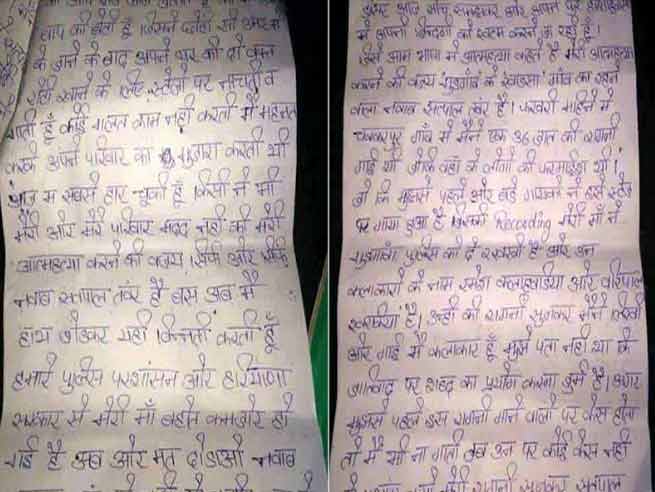 बाप की बेटी हूँ जिसने पहले
के जाने के बाद अपने घर की दो वक्त
रोटी खाने के लिए स्टेजों पर नाचती व
गाती हूँ कोई गलत काम नहीं करती मैं मेहनत
करके अपने परिवार का गुजारा करती थी
आज मैं सबसे हार चुकी हूँ किसी ने भी
मेरी और मेरे परिवार मदद नहीं की मेरी
आत्महत्या करने की वजय सिर्फ और सिर्फ
नवाब सतपाल तंवर है बस अब मैं
हाथ जोडकर यही विनती करती हूँ
हमारे पुलिस परशांसन और हरियाणा
सरकार से मेरी माँ बहोत कमजोर हो
गई है अब और मत दौडाओ नवाब
मैं अपनी को खत्म करने जा रही हूँ।
जिसे आम भाषा में आत्महत्या कहते है मेरी आत्महत्या
करने की वजय गुडगाँव के खांडसा गाँव का रहने
वाला नवाब सतपाल तंवर है। फरवरी महिने में
चक्करपुर गाँव में मैंने एक 36 जात की रागनी
गाई थी जोकि वहाँ के लोगों की फरमाईश थी।
जो कि मुझसे पहले और बडे गायकार ने इसे स्टेज
पर गाया हुआ है जिसकी Recording मेरी माँ ने
गुडगाँवा पुलिस को दे रखखी है और उन
कलाकारों के नाम रमेश कलाहवडिया और
है। उन्हीं की रागनी सुनकर मैंने लिखी
और गाई मैं कलाकार हूँ मुझे पता नहीं था कि
जातिवाद पर शब्द का प्रयोग करना जुर्म है। अगर
मुझसे पहले इस रागनी गाने वालो पर केस होता
तो मैं भी ना गाती जब उन पर कोई केस नहीं
मेरी रागनी सुनकर सतपाल